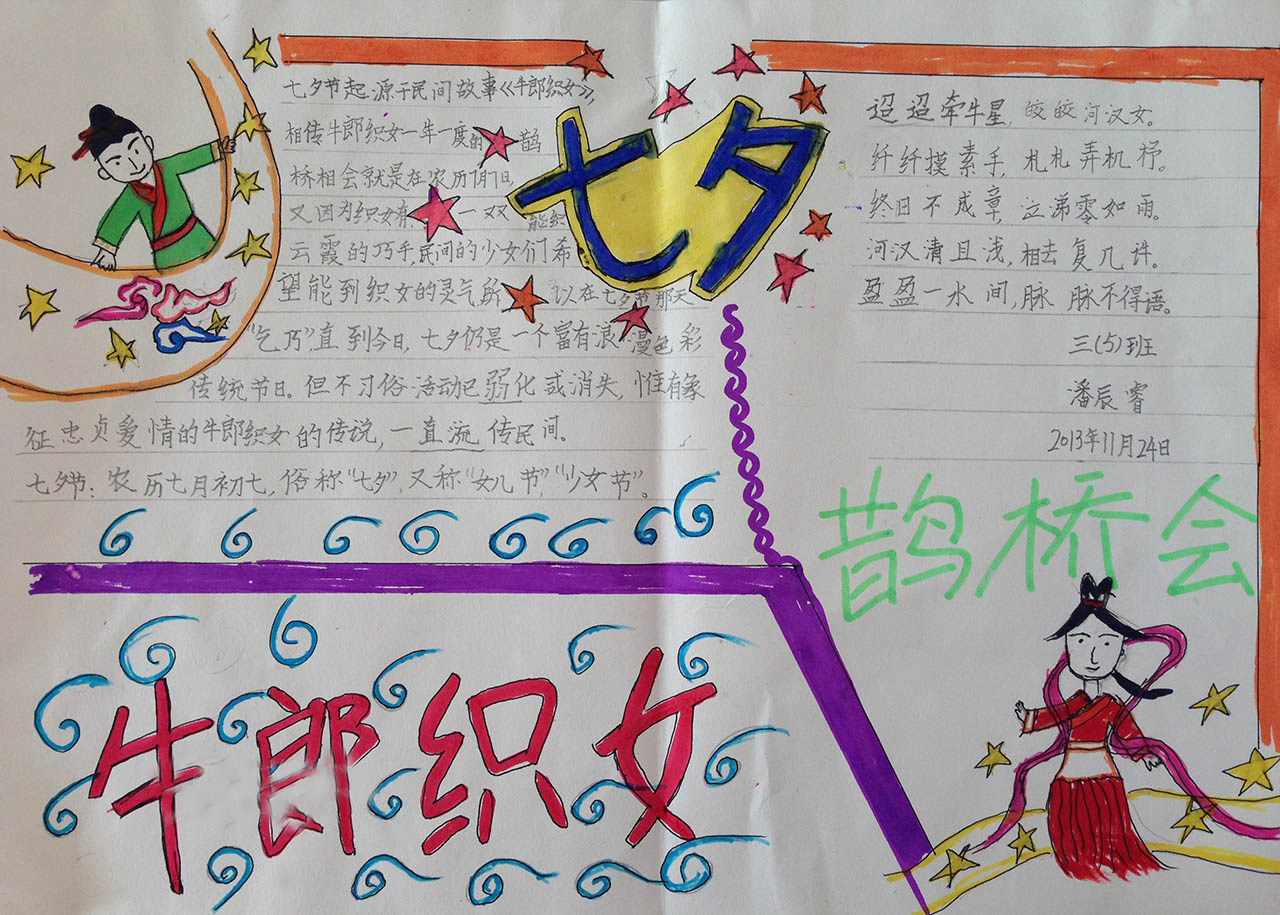 七夕节起源于民间故事《牛郎织女》,
相传牛郎织女一年一度的鹊
桥相会就是在农历
又因为织女有一双能织
云霞的巧手,民间的少女们希
望能到织女的灵气所以在七夕节那天
"乞巧",直到今日,七夕仍是一个富有浪漫色彩
传统节日。但不习俗活动已弱化或消失,惟有象
征忠贞爱情的牛郎织女的传说,一直流传民间。
七夕节:农历七月初七,俗称"七夕",又称"女儿节""少女节"。
七夕
迢迢牵牛星,皎皎河汉女。
纤纤摸素手,札札弄机杼。
终日不成章,泣涕零如雨。
河汉清且浅,相去复几许。
盈盈一水间,脉脉不得语。
三(5)班
潘辰睿
2013年11月24日
鹊桥会
牛郎织女